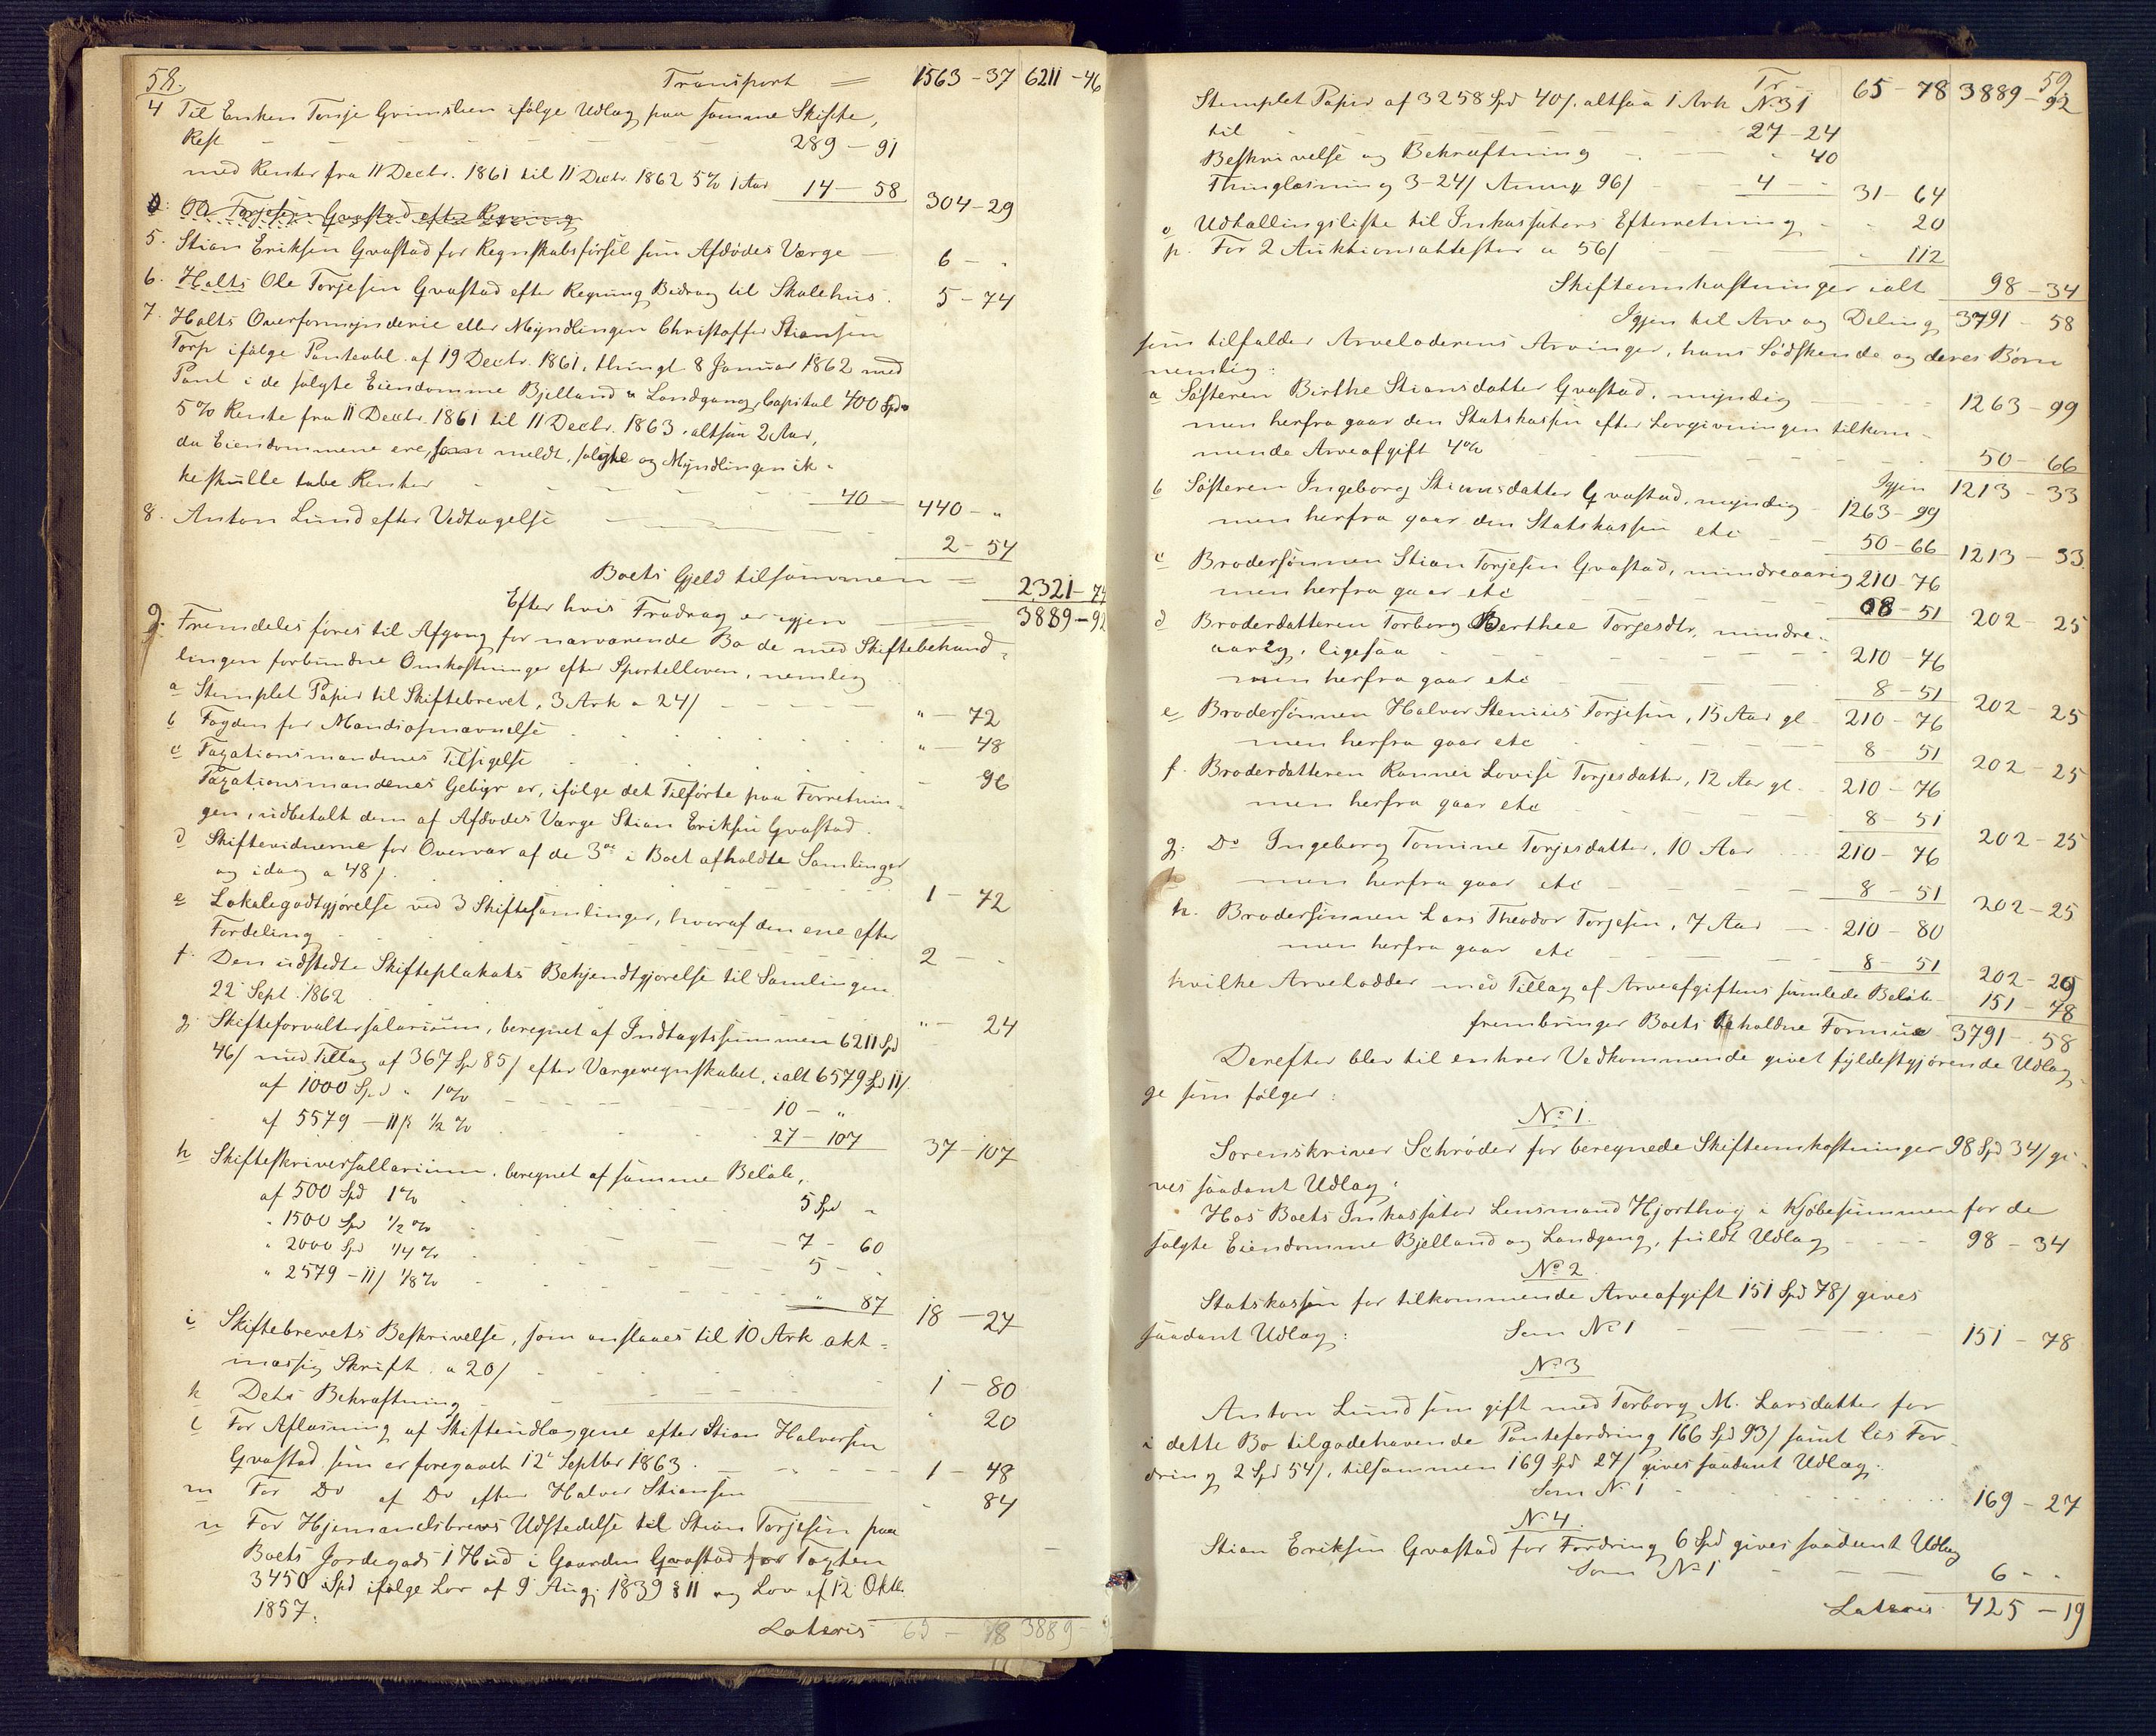 58.
Transport = 1563-37 6211-46
4 Til Enken Tonje Grimslien ifölge Udlæg paa samme Skifte,
Rest - - - - 289-91
med Renter fra 11 Decbr. 1861 til 11 Decbr. 1862 5% 1 Aar 14-58 304-29
5. Stian Eriksen Gvastad for Regnskabsförsel som Afdödes Værge - 6 - "
6. Holts Ole Torjesen Gvastad efter Regning Bidrag til Skolehus. 5-74
7. Holts Overformynderie eller Myndlingen Christoffer Stiansen
Torp ifölge Panteobl. af 19 Decbr. 1861, thingl. 8 Januar 1862 med
Pant i de solgte Eiendomme Bjelland & Landgang, Capital 400 Spd
5% Rente fra 11 Decbr. 1861 til 11 Decbr. 1863, altsaa 2 Aar,
da Eiendommene ere, som meldt, solgte og Myndlingen ik-
ke skulle tabe Renter - - - - 40 - 440 - "
8. Anton Lund efter Vedtagelse - 2-54
Boets Gjeld tilsammen = 2321-74
Efter hvis Fradrag er igjen - 3889-92
9. Fremdeles föres til Afgang for nærværende Bo de med Skiftebehand-
lingen forbundne Omkostninger efter Sportelloven, nemlig
a Stemplet Papir til Skiftebrevet, 3 Ark a 24/ - - - " - 72
b Fogden for Mandsopnævnelse " - 48
c Taxationsmændenes Tilsigelse - 96
Taxationsmændenes Gebyr er, ifölge det Tilförte paa Forretnin-
gen, udbetalt dem af Afdödes Værge Stian Eriksen Gvastad.
d Skiftevidnerne for Overvær af de 3de i Boet afholdte Samlinger
og idag a 48/. - - - 1-72
e Lokalegodtgjörelse ved 3 Skiftesamlinger, hvoraf den ene efter
Fordeling - - - 2 - -
f. Den udstedte Skifteplakats Bekjendtgjörelse til Samlingen
22 Sept. 1862 " - 24
g. Skifteforvaltersalarium, beregnet af Indtægtssummen 6211 Spd
46/ med Tillæg af 367 Sp 85/ efter Værgeregnskabet, ialt 6579 Spd 11/.
af 1000 Spd " 1% - - - 10 - "
af 5579 - 11/ ½% 27-107 37-107
h Skifteskriversallarium, beregnet af samme Belöb,
af 500 Spd 1% 5 Spd "
" 1500 Spd ½% 7-60
" 2000 Spd ¼% - - - 5 - -
" 2579-11/ 1/8% " 87 18-27
i Skiftebrevets Beskrivelse, som anslaaes til 10 Ark akt-
mæssig Skrift a 20/ 1-80
k Dets Bekræftning - - - " 20
l For Aflæsning af Skifteudlæggene efter Stian Halvorsen
Gvastad som er foregaaet 12te Septbr 1863. - - - 1-48
m For Do af Do efter Halvor Stiansen - 84
n For Hjemmelsbrevs Udstedelse til Stian Torjesen paa
Boets Jordegods 1 Hud i Gaarden Gvastad for Taxten
3450 Spd ifölge Lov af 9 Aug. 1839 § 11 og Lov af 12 Oktbr.
1857.
Lateris 65-78 3889-
59
Tr- 65-78 3889-92
Stemplet Papir af 3258 Spd 40/. altsaa 1 Ark No 31
til - - - 27-24
Beskrivelse og Bekræftning - " 40
Thinglæsning 3-24/ Anm. 96/ - 4 - - 31-64
o Udtallingsliste til Inkassators Efterretning - " 20
p. For 2 Auktionsattester a 56/ - " 112
Skifteomkostninger ialt 98-34
Igjen til Arv og Deling 3791-58
som tilfalder Arveladerens Arvinger, hans Södskende og deres Börn
nemlig:
a Sösteren Birthe Stiansdatter Gvastad, myndig - 1263-99
men herfra gaar den Statskassen efter Lovgivningen tilkom-
mende Arveafgift 4% - 50-66
Igjen 1213-33
b Sösteren Ingeborg Stiansdatter Gvastad, myndig - 1263-99
men herfra gaar den Statskassen etc - 50-66 1213-33.
c Brodersönnen Stian Torjesen Gvastad, mindreaarig 210-76
men herfra gaar etc - 08-51 202-25
d Broderdatteren Torborg Berthee Torjesdtr, mindre-
aarig, ligesaa - - - 210-76
men herfra gaar etc - 8-51 202-25
e Brodersönnen Halvor Stenius Torjesen, 15 Aar gl - 210-76
men herfra gaar etc - 8-51 202-25
f. Broderdatteren Rannei Lovise Torjesdatter, 12 Aar gl. - 210-76
men herfra gaar etc - 8-51 202-25
g. Do Ingeborg Tomine Torjesdatter, 10 Aar - 210-76
men herfra gaar etc - 8-51 202-25
h. Brodersönnen Lars Theodor Torjesen, 7 Aar - 210-80
men herfra gaar etc - 8-51 202-29
hvilke Arvelodder med Tillæg af Arveafgiftens samlede Belöb - 151-78
frembringer Boets Beholdne Formue 3791-58
Derefter blev til enhver Vedkommende givet fyldestgjörende Udlæg-
ge som fölger:
No 1.
Sorenskriver Schröder for beregnede Skifteomkostninger 98 Spd 34/ gi-
ves saadant Udlæg:
Hos Boets Inkassator Lensmand Hjorthaug i Kjöbesummen for de
solgte Eiendomme Bjelland og Landgang, fuldt Udlæg - 98-34
No 2.
Statskassen for tilkommende Arveafgift 151 Spd 78/ gives
saadant Udlæg: Som No 1 - 151-78
No 3
Anton Lund som gift med Torborg M. Larsdatter for
i dette Bo tilgodehavende Pantefordring 166 Spd 93/ samt lös For-
dring 2 Spd 54/, tilsammen 169 Spd 27/ gives saadant Udlæg.
Som No 1 - 169-27
No 4.
Stian Eriksen Gvastad for Fordring 6 Spd gives saadant Udlæg
Som No 1 - 6 - -
Lateris 425-19